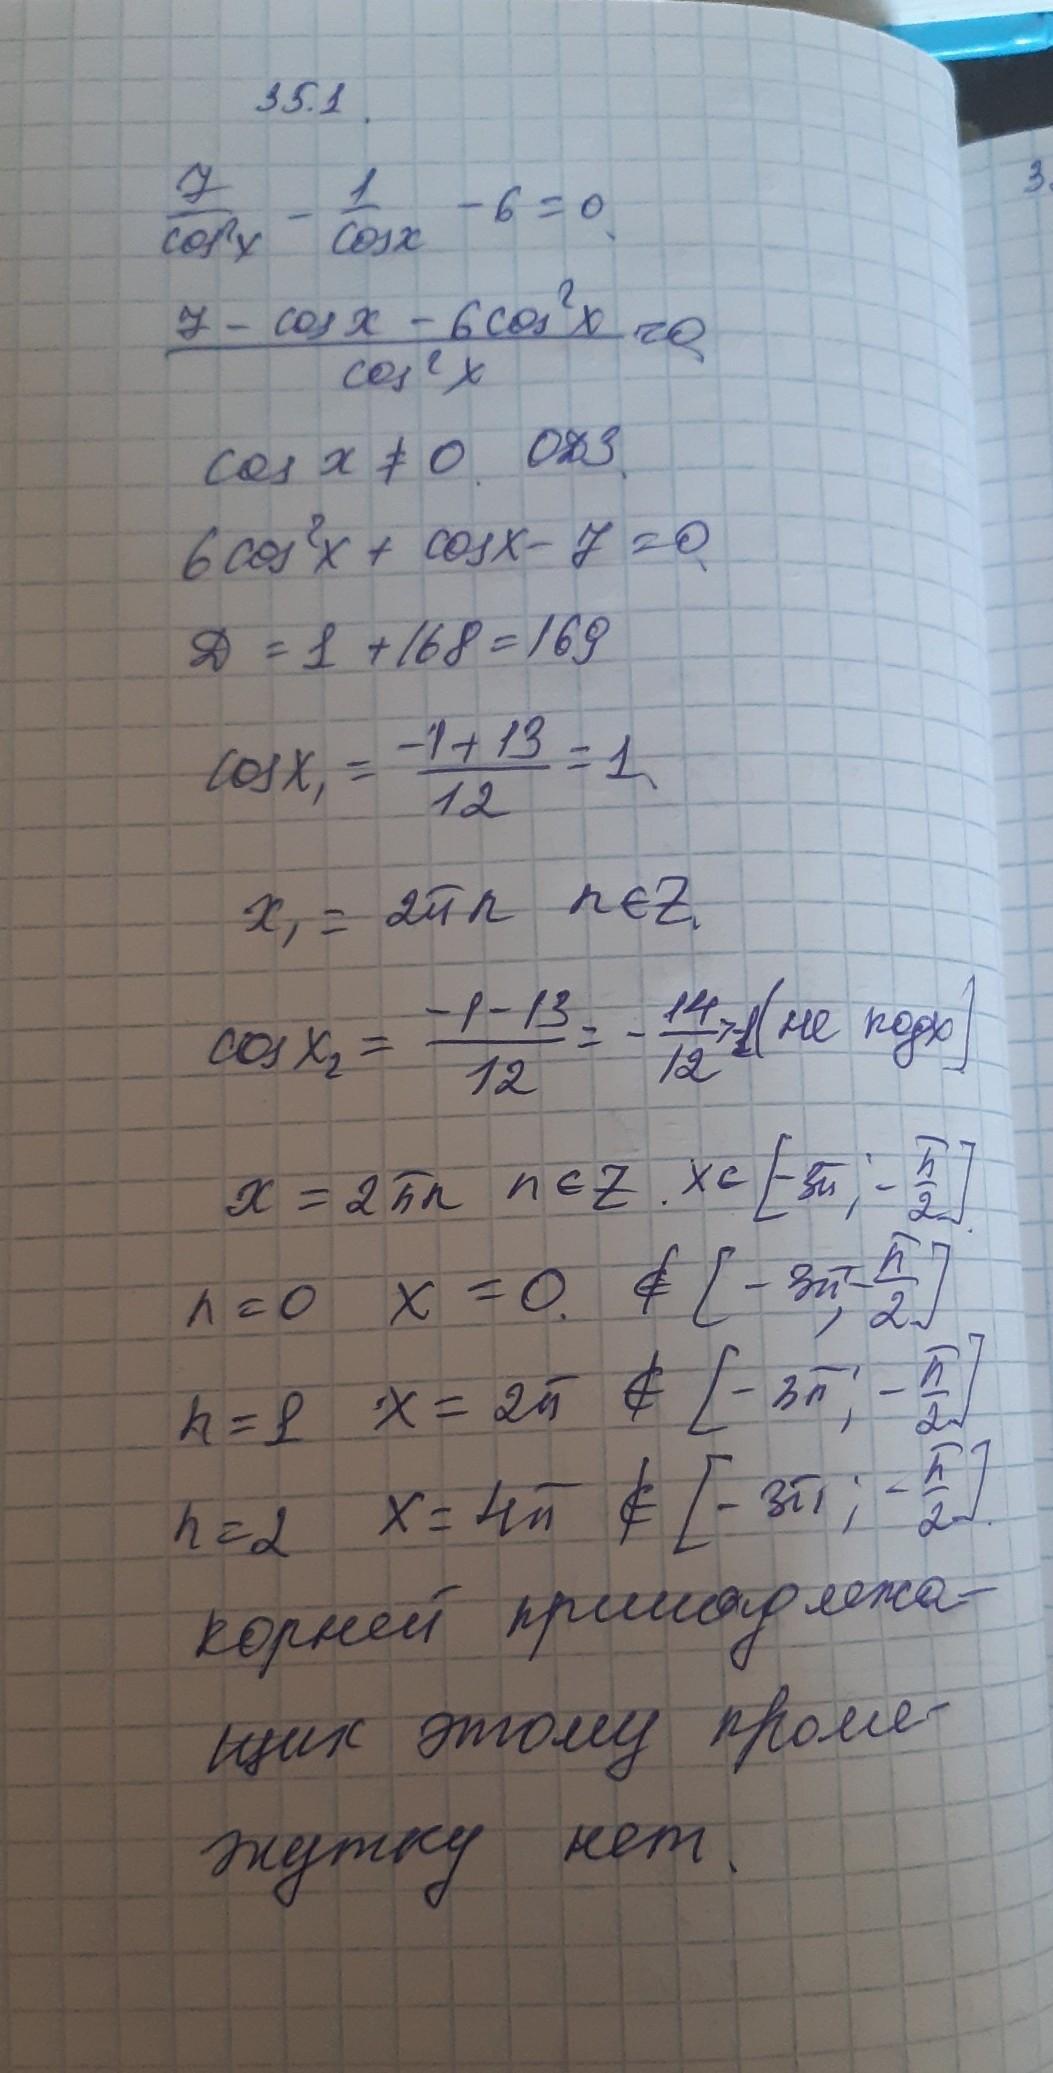 35.1.
7/cos²x - 1/cosx - 6 = 0
(7 - cosx - 6cos²x)/cos²x = 0
cos x ≠ 0. ОДЗ.
6cos²x + cosx - 7 = 0
D = 1 + 168 = 169
cosx₁ = (-1+13)/12 = 1
x₁ = 2πn n∈Z.
cosx₂ = (-1-13)/12 = -14/12 (не подх)
x = 2πn n∈Z. x∈[-3π; -π/2].
n=0 x = 0. ∉ [-3π; -π/2]
n=1 x = 2π ∉ [-3π; -π/2]
n=2 x = 4π ∉ [-3π; -π/2].
корней принадлежа-
щих этому проме-
жутку нет.
3.